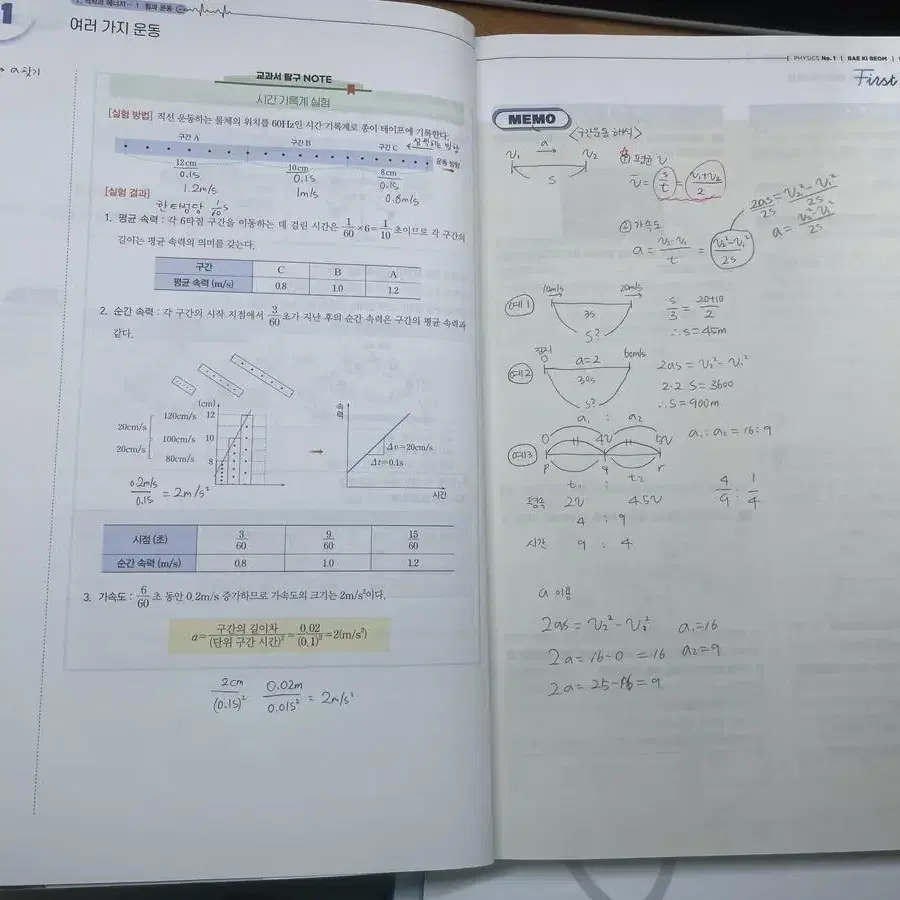 1
1. 역학과 에너지 - 1 힘과 운동
여러 가지 운동
→ a 찾기
교과서 탐구 NOTE
시간 기록계 실험
[실험 방법] 직선 운동하는 물체의 위치를 60Hz인 시간 기록계로 종이 테이프에 기록한다.
구간 A 구간 B 구간 C
운동 방향
12cm 10cm 8cm
0.1s 0.1s 0.1s
1.2m/s 1m/s 0.8m/s
[실험 결과]
한 타점당 1/60 s
1. 평균 속력 : 각 6타점 구간을 이동하는 데 걸린 시간은 1/60 × 6 = 1/10 초이므로 각 구간의
길이는 평균 속력의 의미를 갖는다.
구간 C B A
평균 속력 (m/s) 0.8 1.0 1.2
2. 순간 속력 : 각 구간의 시작 지점에서 3/60 초가 지난 후의 순간 속력은 구간의 평균 속력과
같다.
(cm)
12
10
8
120cm/s
20cm/s
100cm/s
20cm/s
80cm/s
속력
Δv=20cm/s
Δt=0.1s
시간
0.2m/s / 0.1s = 2m/s²
시점 (초) 3/60 9/60 15/60
순간 속력 (m/s) 0.8 1.0 1.2
3. 가속도 : 6/60 초 동안 0.2m/s 증가하므로 가속도의 크기는 2m/s²이다.
a = 구간의 길이차 / (단위 구간 시간)² = 0.02 / (0.1)² = 2(m/s²)
2cm / (0.1s)² 0.02m / 0.01s² = 2m/s²
PHYSICS No.1 | BAE KI BEOM
First
MEMO
<구간운동 해석>
v₁ a v₂
s
① 평균 v
v̄ = s/t = (v₁+v₂)/2
2as/2s = (v₂²-v₁²)/2s
a = (v₂²-v₁²)/2s
② 가속도
a = (v₂-v₁)/t = (v₂²-v₁²)/2s
예1
10m/s 20m/s
3s
s?
s/3 = (20+10)/2
∴ s = 45m
예2
정지 a=2 60m/s
30s
s?
2as = v₂² - v₁²
2·2·s = 3600
∴ s = 900m
예3
a₁ : a₂
0 4v 5v
p q r
t₁ : t₂
a₁ : a₂ = 16 : 9
평속 2v 4.5v
4 : 9
시간 9 : 4
4/9 : 1/4
a 이용
2as = v₂² - v₁² a₁=16
2a = 16-0 = 16 a₂=9
2a = 25-16 = 9